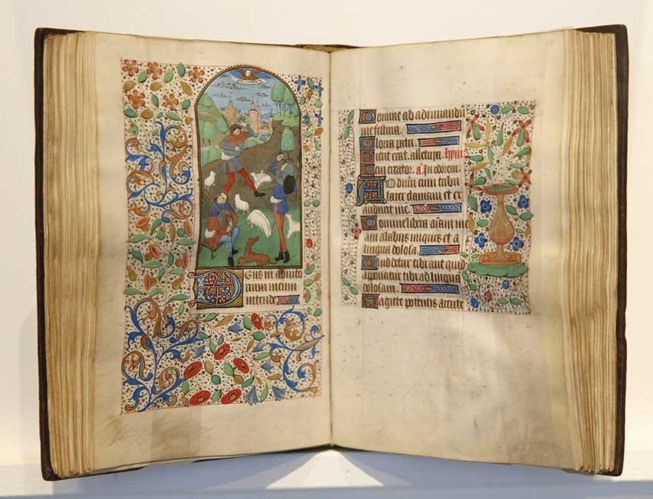 Deus in adiuto
rium meum
intende
Domine ad adiuuandū
me festina.
Gloria patri.
Sicut erat. alleluya.
Veni creator. a. In odorem.
Ad dnm cum tribu
larer clamaui et ex
audiuit me.
Domine libera aīam me
am a labiis iniquis et a
lingua dolosa.
Quid detur tibi aut quid
apponatur tibi ad linguā
dolosam.
Sagitte potentis acute